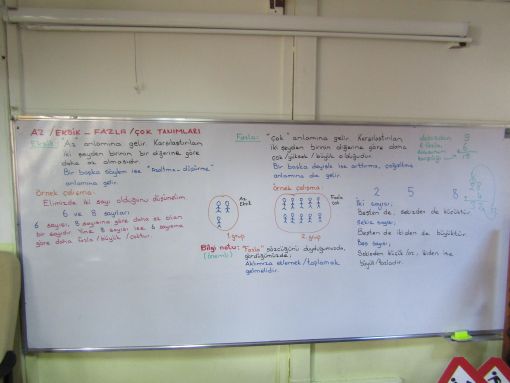 AZ / EKSİK - FAZLA / ÇOK TANIMLARI
Eksik: "Az" anlamına gelir. Karşılaştırılan
iki şeyden birinin bir diğerine göre
daha az olmasıdır.
Bir başka söylem ise "azaltma - düşürme"
anlamına gelir.
Örnek çalışma:
Elimizde iki sayı olduğunu düşünelim
6 ve 8 sayıları
6 sayısı, 8 sayısına göre daha az olan
bir sayıdır. Yine 8 sayısı ise 6 sayısına
göre daha fazla / büyük / çoktur.
Fazla: "Çok" anlamına gelir. Karşılaştırılan
iki şeyden birinin bir diğerine göre daha
çok / yüksek / büyük olduğudur.
Bir başka deyişle ise arttırma, çoğaltma
anlamına da gelir.
Örnek çalışma:
Az
Eksik
1. grup
Fazla
Çok
2. grup
Bilgi notu: "Fazla" sözcüğünü duyduğumuzda,
(önemli) gördüğümüzde;
Aklımıza eklemek / toplamak
gelmelidir.
2 5 8
İki sayısı;
Beşten de, sekizden de küçüktür.
Sekiz sayısı;
Beşten de ikiden de büyüktür.
Beş sayısı;
Sekizden küçük / az; ikiden ise
büyük / fazladır.
9
6
15